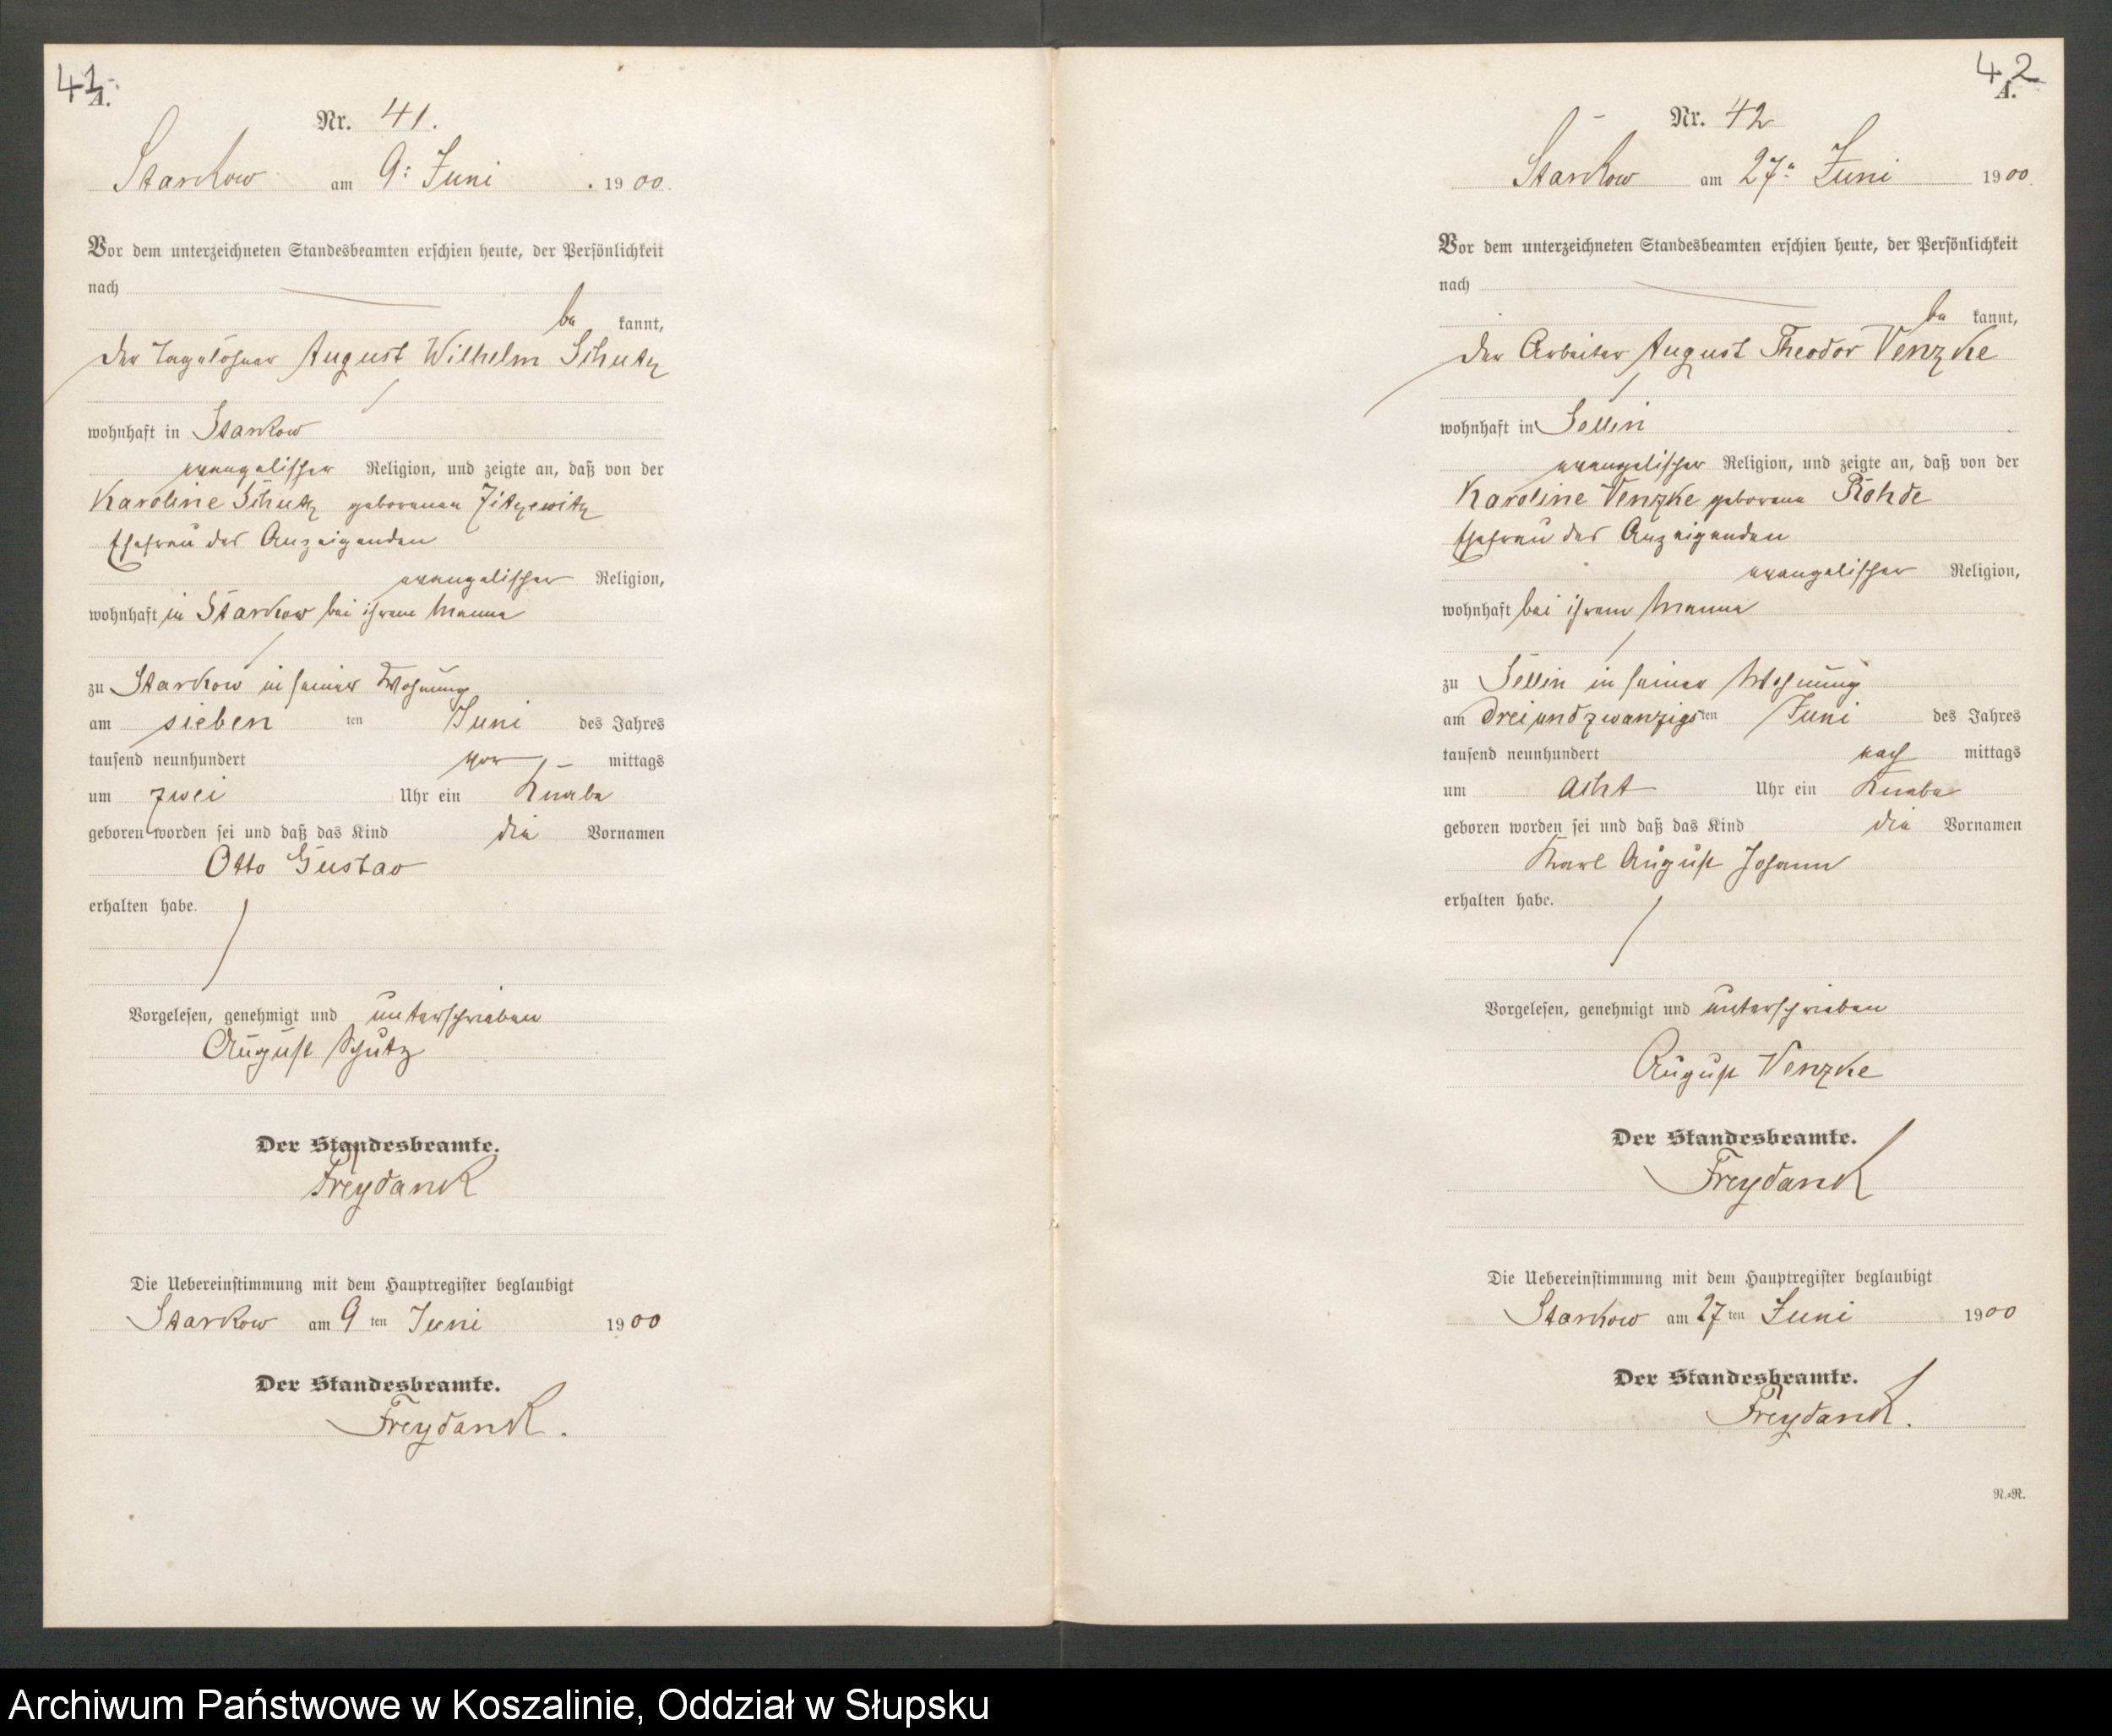 41.
A.
Nr. 41.
Starkow am 9. Juni 1900.
Vor dem unterzeichneten Standesbeamten erschien heute, der Persönlichkeit
nach
be kannt,
der Tagelöhner August Wilhelm Schutz
wohnhaft in Starkow
evangelischer Religion, und zeigte an, daß von der
Karoline Schutz geborenen Zitzewitz
Ehefrau des Anzeigenden
evangelischer Religion,
wohnhaft in Starkow bei ihrem Manne
zu Starkow in seiner Wohnung
am sieben ten Juni des Jahres
tausend neunhundert vor mittags
um zwei Uhr ein Knabe
geboren worden sei und daß das Kind die Vornamen
Otto Gustav
erhalten habe.
Vorgelesen, genehmigt und unterschrieben
August Schutz
Der Standesbeamte.
Freydank
Die Uebereinstimmung mit dem Hauptregister beglaubigt
Starkow am 9 ten Juni 1900
Der Standesbeamte.
Freydank.
42
A.
Nr. 42
Starkow am 27. Juni 1900.
Vor dem unterzeichneten Standesbeamten erschien heute, der Persönlichkeit
nach
be kannt,
der Arbeiter August Theodor Venzke
wohnhaft in Sellin
evangelischer Religion, und zeigte an, daß von der
Karoline Venzke geborene Rohde
Ehefrau des Anzeigenden
evangelischer Religion,
wohnhaft bei ihrem Manne
zu Sellin in seiner Wohnung
am dreiundzwanzigs ten Juni des Jahres
tausend neunhundert nach mittags
um acht Uhr ein Knabe
geboren worden sei und daß das Kind die Vornamen
Karl August Johann
erhalten habe.
Vorgelesen, genehmigt und unterschrieben
August Venzke
Der Standesbeamte.
Freydank
Die Uebereinstimmung mit dem Hauptregister beglaubigt
Starkow am 27 ten Juni 1900
Der Standesbeamte.
Freydank.
N.=R.
Archiwum Państwowe w Koszalinie, Oddział w Słupsku